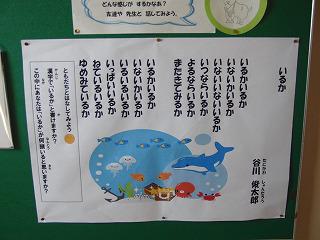 どんな感じが するかなあ？
友達や 先生と 話してみよう。
いるか
たにかわ しゅんたろう
谷川 俊太郎
いるかいるか
いないかいるか
いないいないいるか
いつならいるか
よるならいるか
またきてみるか
いるかいないか
いないかいるか
いるいるいるか
いっぱいいるか
ねているいるか
ゆめみているか
ともだちとはなしてみよう
漢字で、"いるか"と書けますか？
この中にあなたは"いるか"が何頭いると思いますか？